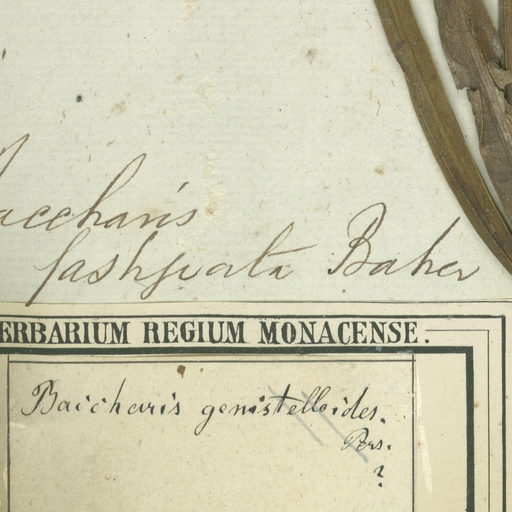 Baccharis
fastigiata Baker
ERBARIUM REGIUM MONACENSE.
Baccharis genistelloides.
Pers.
?